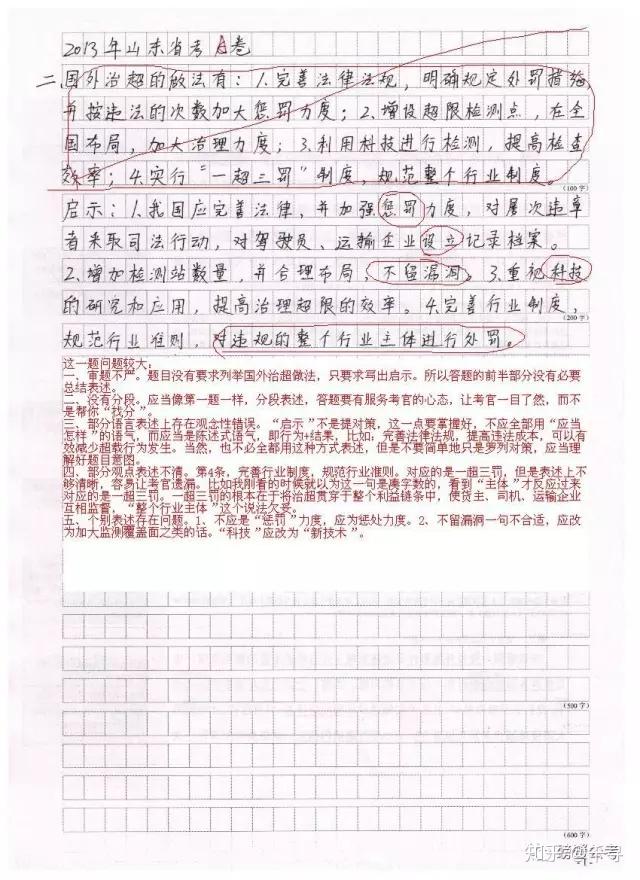 2013年山东省考A卷
二、国外治超的做法有：1.完善法律法规，明确规定处罚措施，
并按违法的次数加大惩罚力度；2.增设超限检测点，在全
国布局，加大治理力度；3.利用科技进行检测，提高检查
效率；4.实行“一超三罚”制度，规范整个行业制度。
(100字)
启示：1.我国应完善法律、并加强惩罚力度，对屡次违章
者采取司法行动，对驾驶员、运输企业设立记录档案。
2.增加检测站数量，并合理布局，不留漏洞。3.重视科技
的研究和应用，提高治理超限的效率。4.完善行业制度，
(200字)
规范行业准则，对违规的整个行业主体进行处罚。
这一题问题较大：
一、审题不严。题目没有要求列举国外治超做法，只要求写出启示。所以答题的前半部分没有必要
总结表述。
二、没有分段。应当像第一题一样，分段表述，答题要有服务考官的心态，让考官一目了然，而不
是帮你“找分”。
三、部分语言表述上存在观念性错误。“启示”不是提对策，这一点要掌握好，不应全部用“应当
怎样”的语气，而应当是陈述式语气，即行为+结果，比如：完善法律法规，提高违法成本，可以有
效减少超载行为发生。当然，也不必全都用这种方式表述，但是不要简单地只是罗列对策，应当理
解好题目意图。
四、部分观点表述不清。第4条，完善行业制度，规范行业准则。对应的是一超三罚，但是表述上不
够清晰，容易让考官遗漏。比如我刚看的时候就以为这一句是凑字数的，看到“主体”才反应过来
对应的是一超三罚。一超三罚的根本在于将治超贯穿于整个利益链条中，使货主、司机、运输企业
互相监督，“整个行业主体”这个说法欠妥。
五、个别表述存在问题。1、不应是“惩罚”力度，应为惩处力度。2、不留漏洞一句不合适，应改
为加大监测覆盖面之类的话。“科技”应改为“新技术”。
(500字)
(600字)
知乎